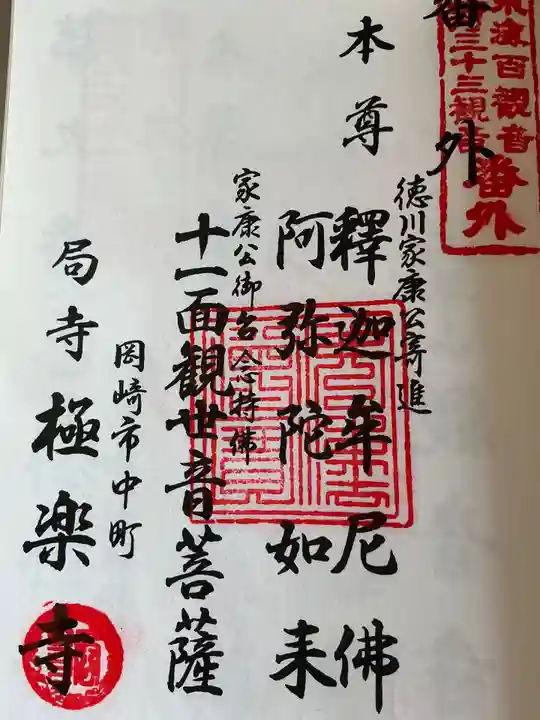 東海百観音
三十三観音
番外
番外
本尊
徳川家康公寄進
釋迦牟尼佛
阿弥陀如来
家康公御念持佛
十一面観世音菩薩
岡崎市中町
局寺極楽寺